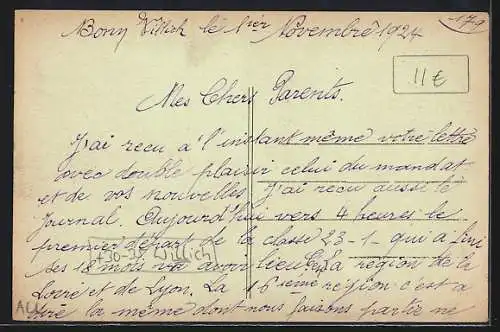 Bony Villich le 1er Novembre 1924
179
11€
Mes Chers Parents.
J'ai recu a l'instant même votre lettre
avec double plaisir celui du mandat
et de vos nouvelles J'ai recu aussi le
Journal. Aujourd'hui vers 4 heures le
premier départ de la classe 23-1- qui a fini
ses 18 mois va avoir lieu C'est la région de la
Willich
Loire et de Lyon. La 16 seme région c'est a
dire la même dont nous faisons partie ne